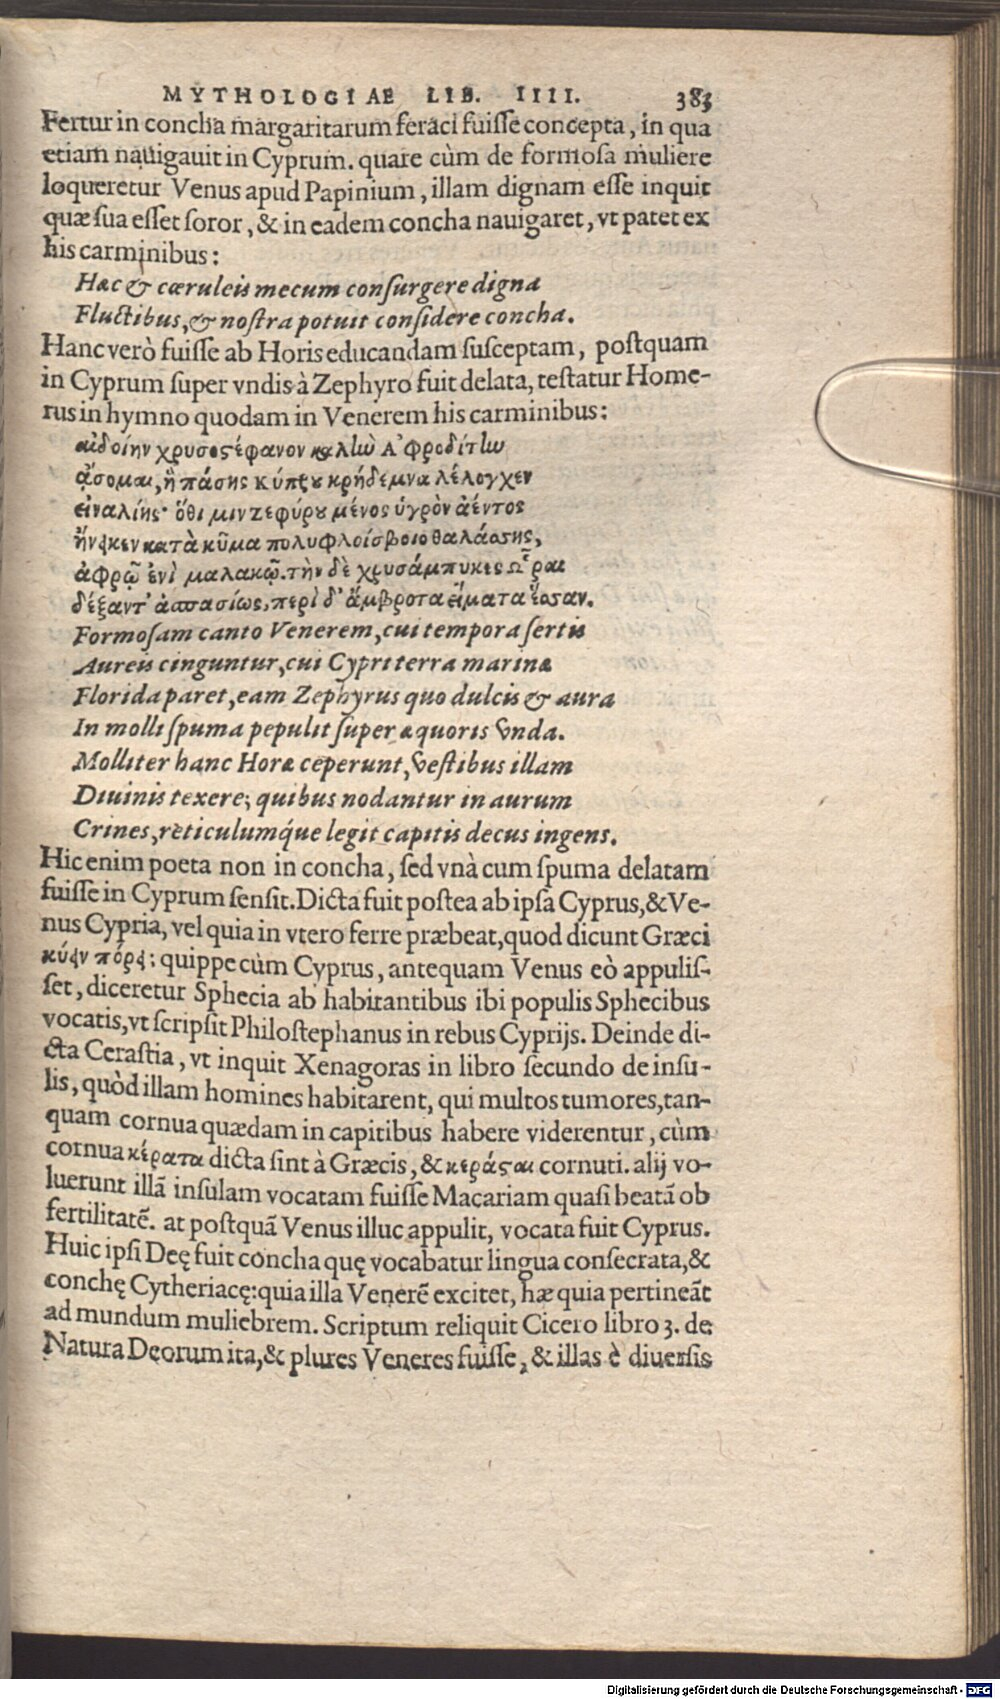 MYTHOLOGIAE LIB. IIII. 383
Fertur in concha margaritarum feraci fuisse concepta, in qua
etiam nauigauit in Cyprum. quare cùm de formosa muliere
loqueretur Venus apud Papinium, illam dignam esse inquit
quæ sua esset soror, & in eadem concha nauigaret, vt patet ex
his carminibus:
Hæc & cæruleis mecum consurgere digna
Fluctibus, & nostra potuit considere concha.
Hanc verò fuisse ab Horis educandam susceptam, postquam
in Cyprum super vndis à Zephyro fuit delata, testatur Home-
rus in hymno quodam in Venerem his carminibus:
αἰδοίην χρυσοστέφανον καλὴν Ἀφροδίτην
ᾄσομαι, ἣ πάσης Κύπρου κρήδεμνα λέλογχεν
εἰναλίης· ὅθι μιν ζεφύρου μένος ὑγρὸν ἀέντος
ἤνεικεν κατὰ κῦμα πολυφλοίσβοιο θαλάσσης,
ἀφρῷ ἐνὶ μαλακῷ. τὴν δὲ χρυσάμπυκες Ὧραι
δέξαντ' ἀσπασίως, περὶ δ' ἄμβροτα εἵματα ἕσσαν.
Formosam canto Venerem, cui tempora sertis
Aureis cinguntur, cui Cypri terra marinæ
Florida paret, eam Zephyrus quo dulcis & aura
In molli spuma pepulit super æquoris vnda.
Molliter hanc Horæ ceperunt, vestibus illam
Diuinis texere; quibus nodantur in aurum
Crines, reticulumq́ue legit capitis decus ingens.
Hic enim poeta non in concha, sed vnà cum spuma delatam
fuisse in Cyprum sensit. Dicta fuit postea ab ipsa Cyprus, & Ve-
nus Cypria, vel quia in vtero ferre præbeat, quod dicunt Græci
κύειν πόρει: quippe cùm Cyprus, antequam Venus eò appulis-
set, diceretur Sphecia ab habitantibus ibi populis Sphecibus
vocatis, vt scripsit Philostephanus in rebus Cyprijs. Deinde di-
cta Cerastia, vt inquit Xenagoras in libro secundo de insu-
lis, quòd illam homines habitarent, qui multos tumores, tan-
quam cornua quædam in capitibus habere viderentur, cùm
cornua κέρατα dicta sint à Græcis, & κεράσται cornuti. alij vo-
luerunt illā insulam vocatam fuisse Macariam quasi beatā ob
fertilitatē. at postquā Venus illuc appulit, vocata fuit Cyprus.
Huic ipsi Deę fuit concha quę vocabatur lingua consecrata, &
conchę Cytheriacę: quia illa Venerē excitet, hæ quia pertineāt
ad mundum muliebrem. Scriptum reliquit Cicero libro 3. de
Natura Deorum ita, & plures Veneres fuisse, & illas è diuersis
Digitalisierung gefördert durch die Deutsche Forschungsgemeinschaft - DFG